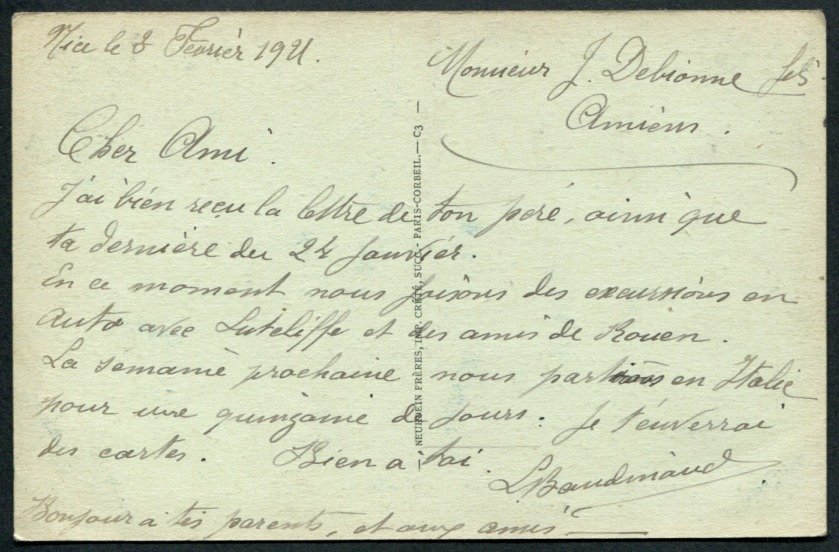 Nice le 3 Février 1921.
Monsieur J. Debionne fils
Amiens.
Cher Ami.
J'ai bien reçu la lettre de ton peré, ainsi que
ta derniére du 24 Janviér.
En ce moment nous faisons des excursions en
auto avec Sutcliffe et des amis de Rouen.
La semaine prochaine nous partions en Italie
pour une quinzaine de jours. Je t'enverrai
des cartes. Bien a toi.
L. Baudinaud
Bonjour a tes parents, et aux amis
NEURDEIN FRÈRES, IMP. CRÉTÉ, SUCC. - PARIS-CORBEIL. — C3 —